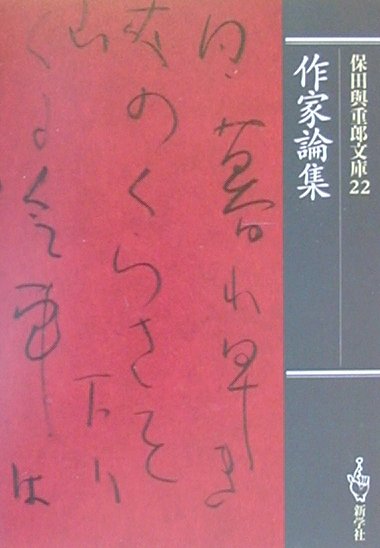 保田與重郎文庫22
作家論集
日暮れ早き
峡のくらさを
山下り
新学社